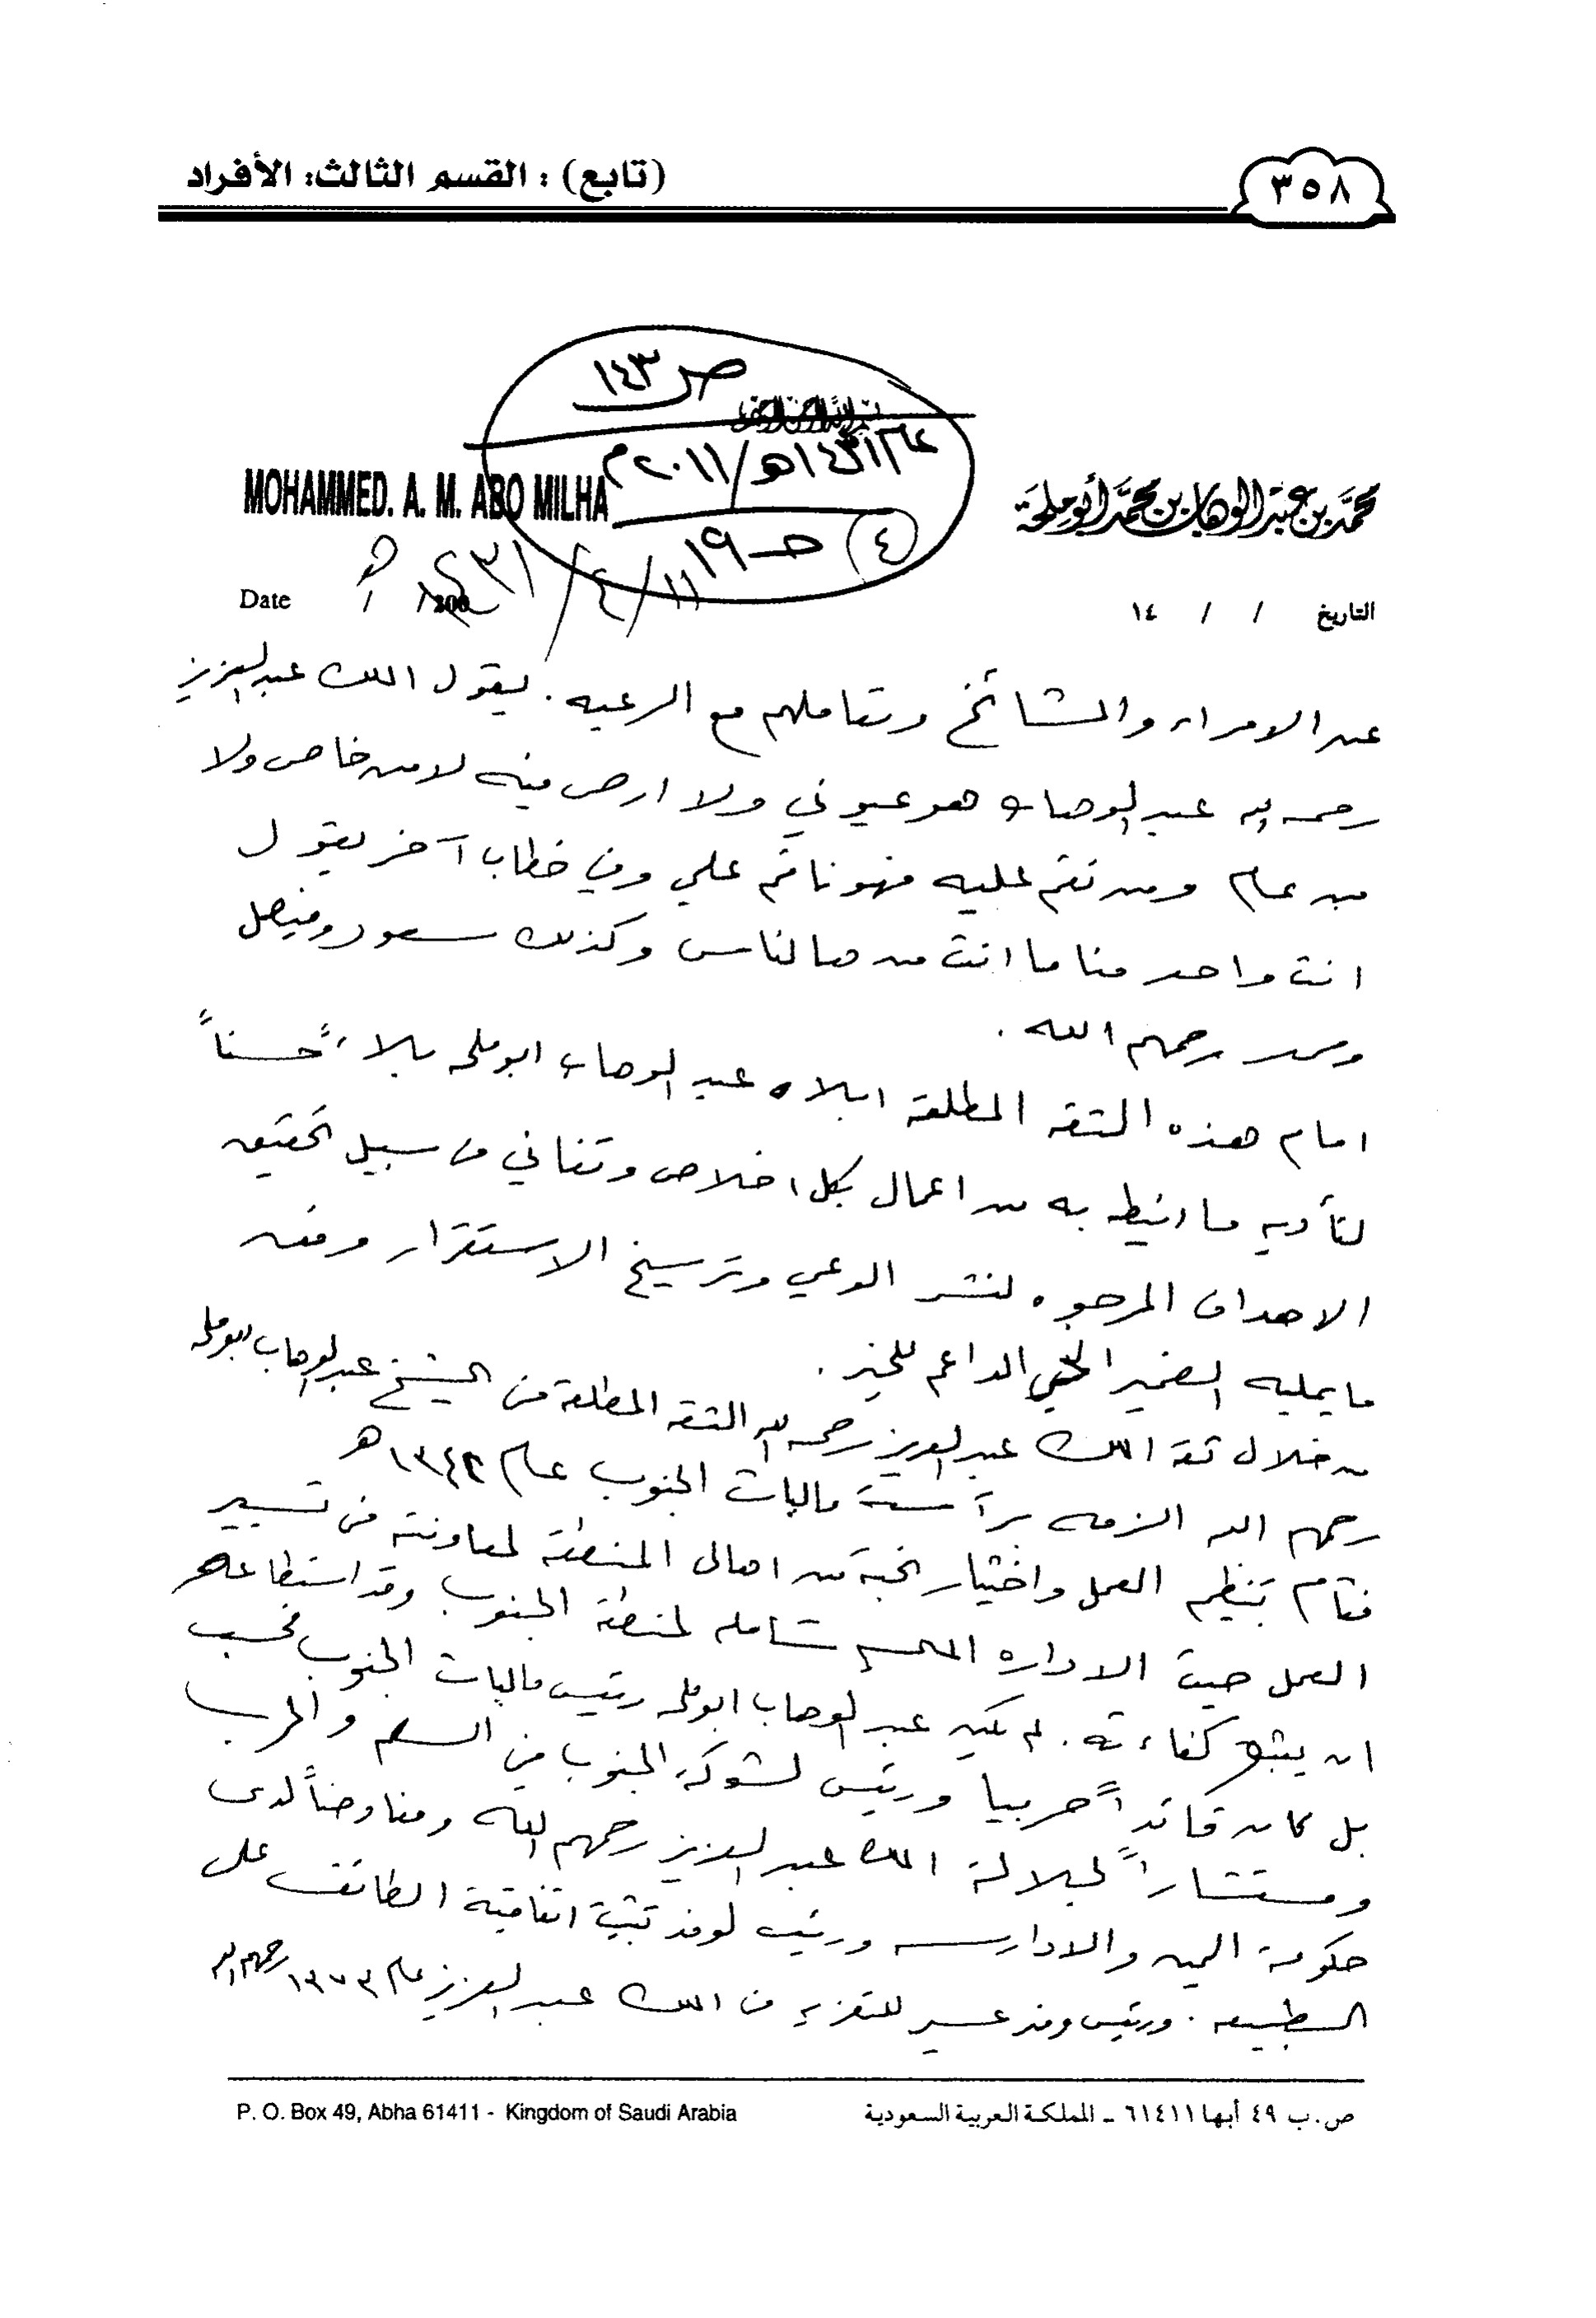 ٣٥٨
(تابع) : القسم الثالث: الأفراد
ص ١٤٣
١٤٣٢هـ/٢٠١١م
حـ ١٩ (٤)
MOHAMMED. A. M. ABO MILHA
محمد بن عبد الوهاب بن محمد أبو ملحة
Date ١١/٤/١٤٣١هـ
التاريخ / / ١٤
عن الامراء والمشائخ وتعاملهم مع الرعيه . يقول الملك عبد العزيز
رحمه الله عبد الوهاب هو عيوني ولا ارضى فيه لا من خاص ولا
من عام ومن نقم عليه فهو ناقم علي وفي خطاب آخر يقول
انت واحد منا ما انت من هالناس وكذلك سعود وفيصل
رحمهم الله .
امام هذه الثقه المطلقه ابلاه عبد الوهاب ابو ملحه بلاءً حسناً
لتأديه ما انيط به من اعمال بكل اخلاص وتفاني في سبيل تحقيق
الاهداف المرجوه لنشر الوعي وترسيخ الاستقرار وفق
ما يمليه الضمير الحي الداعم للخير .
من خلال ثقة الملك عبد العزيز رحمه الله الثقه المطلقة في الشيخ عبد الوهاب ابو ملحه
رحمهم الله الزمه برآسة ماليات الجنوب عام ١٣٤٢هـ
فقام بتنظيم العمل واختيار نخبة من اهالي المنطقة لمعاونته في تسيير
العمل حيث الاداره شامله لمنطقة الجنوب وقد استطاع
ان يثبت كفاءته . لم يكن عبد الوهاب ابو ملحه رئيس ماليات الجنوب فحسب
بل كان قائداً حربيا ورئيس لشوكة الجنوب في السلم والحرب
ومستشاراً لجلالة الملك عبد العزيز رحمهم الله ومفاوضاً لدى
حكومة اليمن والادارسه ورئيس لوفد تثبيت اتفاقية الطائف على
الطبيعه . ورئيس وفد عسير للتعزيه في الملك عبد العزيز عام ١٣٧٣ رحمهم الله
P. O. Box 49, Abha 61411 - Kingdom of Saudi Arabia
ص.ب ٤٩ أبها ٦١٤١١ ـ المملكة العربية السعودية